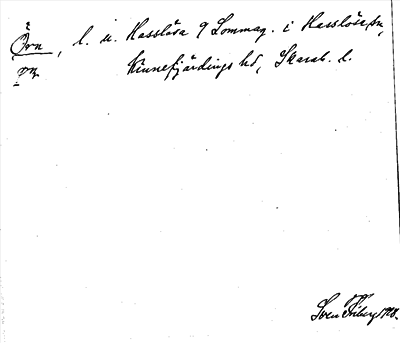 Örn, l. u. Hasslösa 9 Sommag. i Hasslösa sn,
pn Kinnefjärdings hd, Skarab. l.
Sven Friberg 1928.